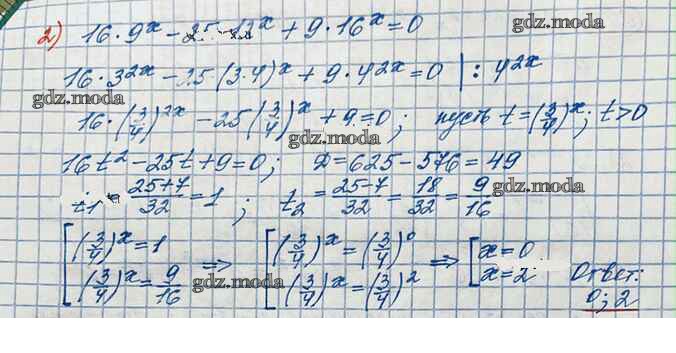 2) 16·9^x − 25·12^x + 9·16^x = 0
gdz.moda
gdz.moda
16·3^{2x} − 25(3·4)^x + 9·4^{2x} = 0 | : 4^{2x}
gdz.moda
16·(3/4)^{2x} − 25(3/4)^x + 9 = 0; пусть t = (3/4)^x; t>0
gdz.moda
16t² − 25t + 9 = 0; D = 625 − 576 = 49
t₁ = (25+7)/32 = 1; t₂ = (25−7)/32 = 18/32 = 9/16
gdz.moda
[(3/4)^x = 1 ⇒ [(3/4)^x = (3/4)^0 ⇒ [x = 0
gdz.moda
(3/4)^x = 9/16 (3/4)^x = (3/4)^2 x = 2 Ответ:
gdz.moda
gdz.moda
0; 2